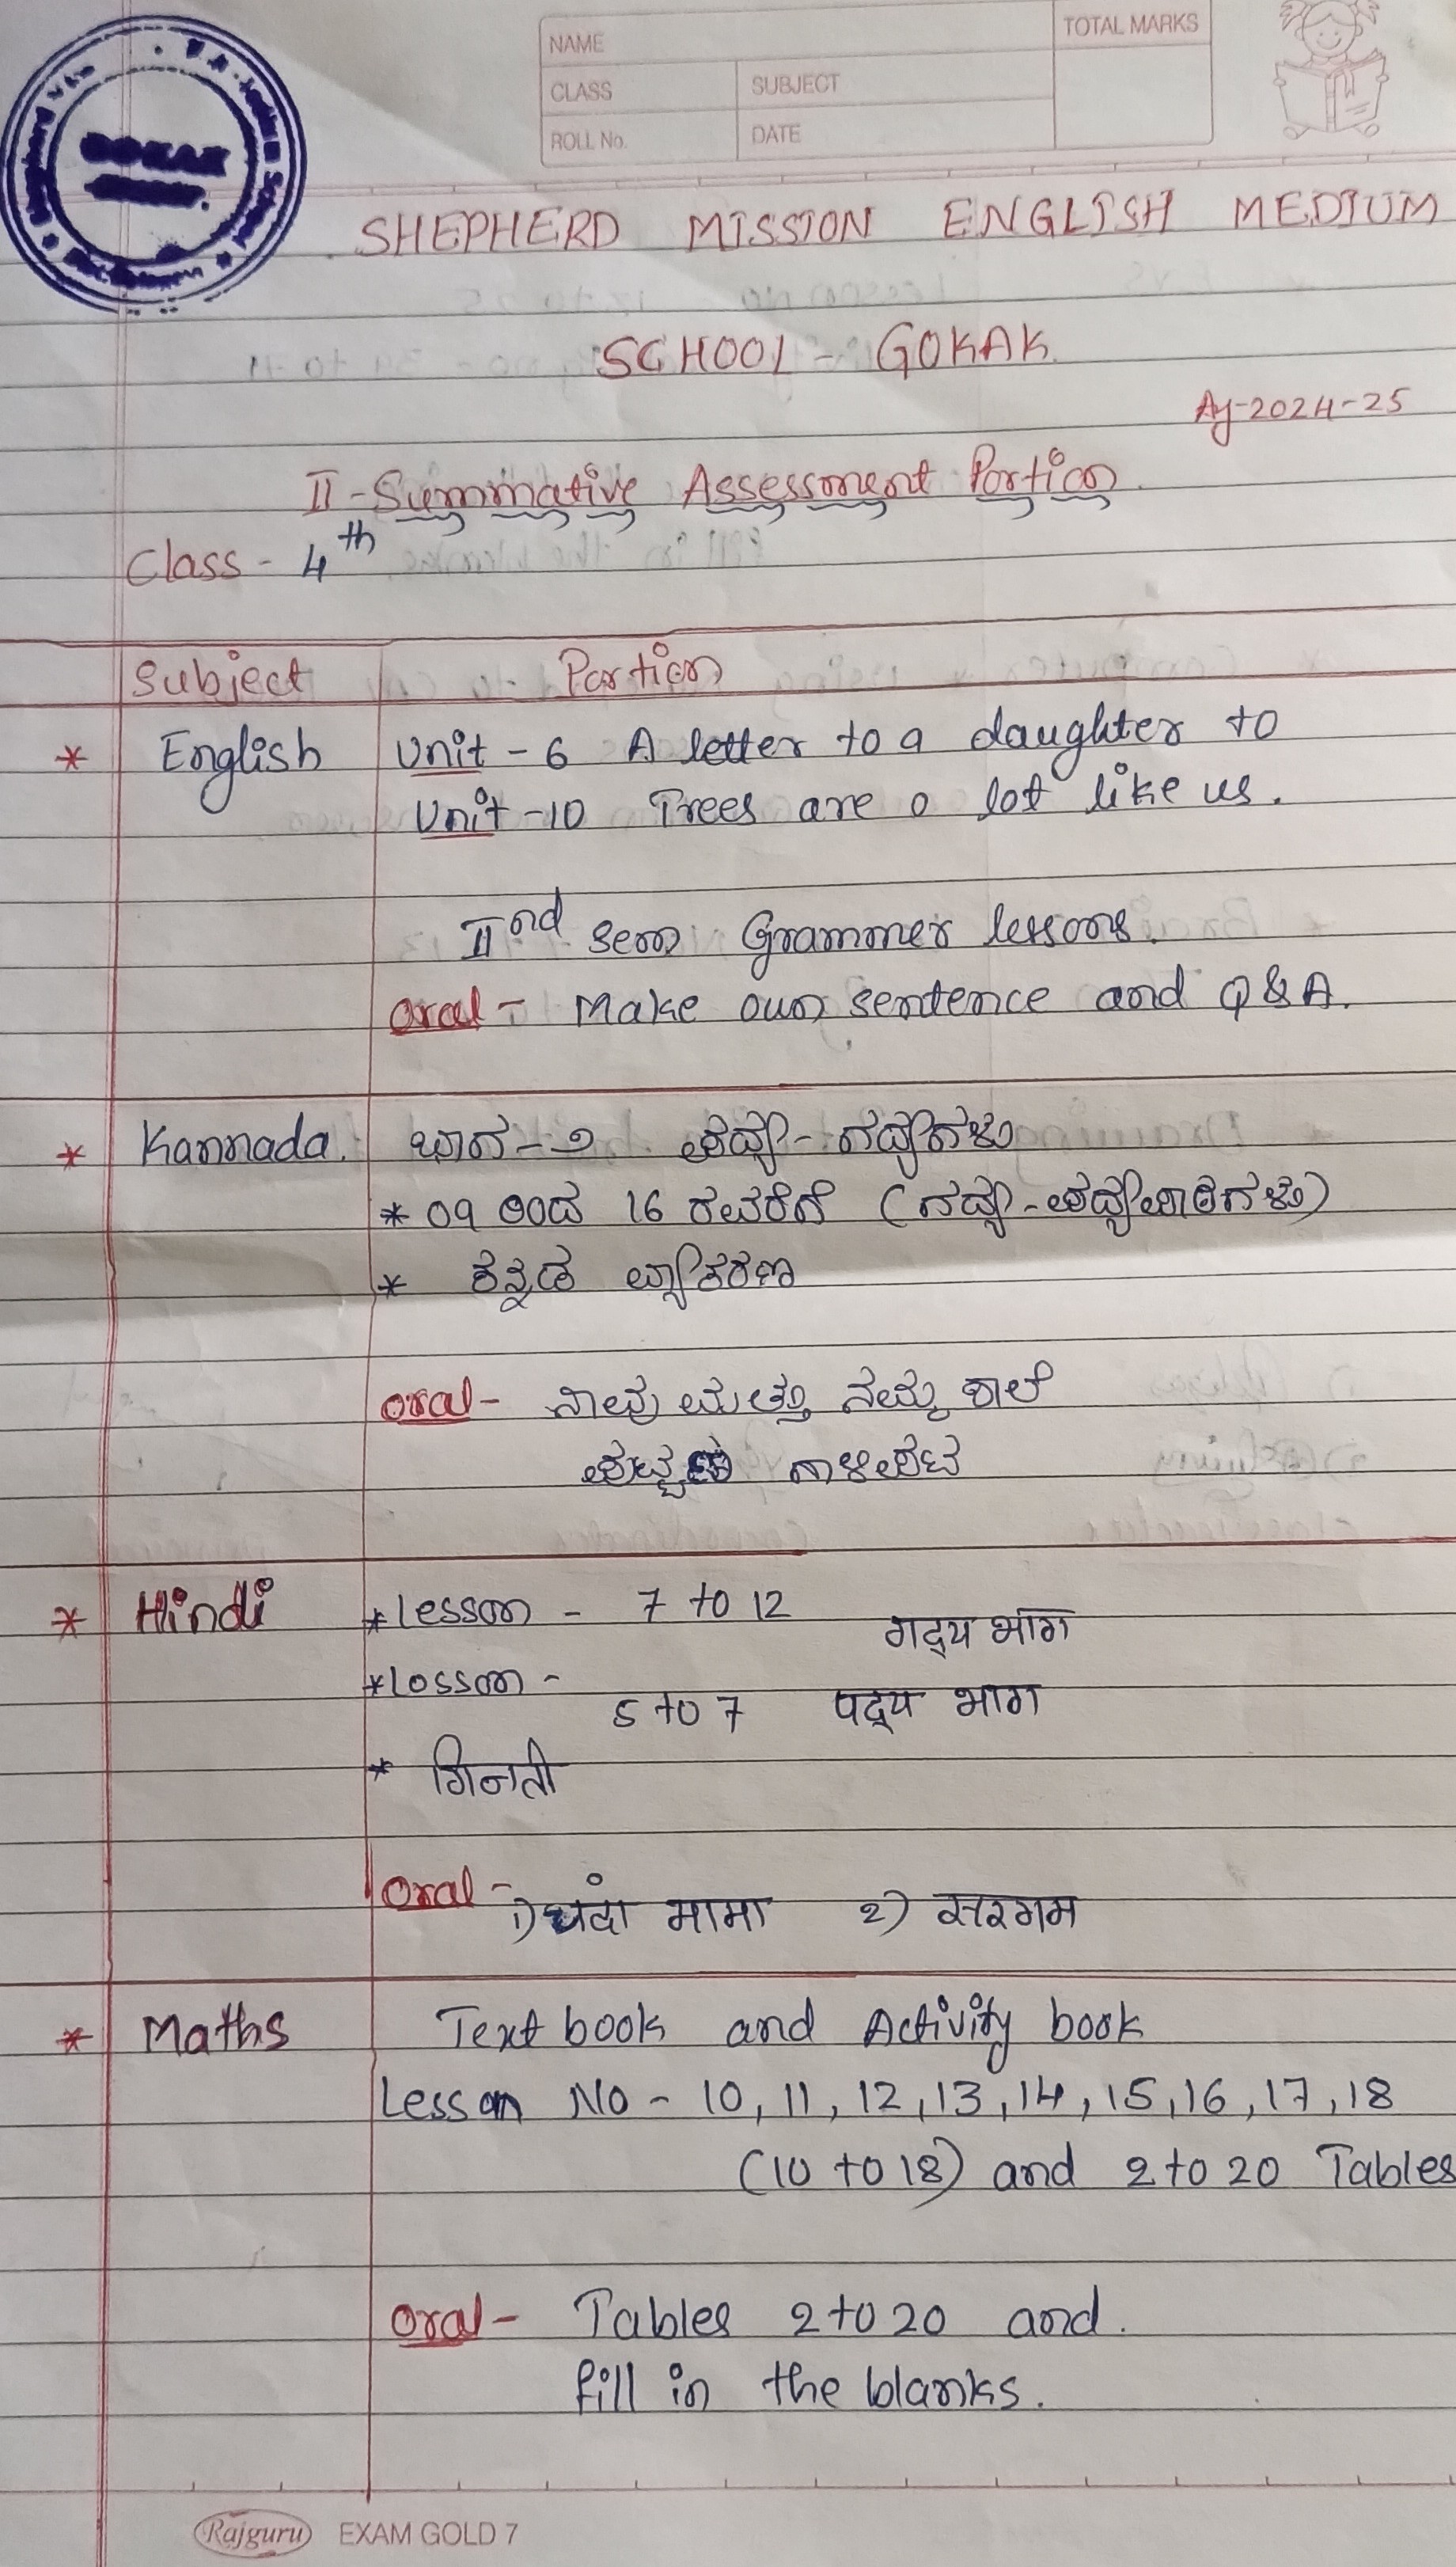 NAME
TOTAL MARKS
CLASS
SUBJECT
ROLL No.
DATE
GOKAK
SHEPHERD MISSION ENGLISH MEDIUM
SCHOOL - GOKAK
Ay-2024-25
II - Summative Assessment Portion
Class - 4th
Subject Portion
* English Unit - 6 A letter to a daughter to
Unit - 10 Trees are a lot like us.
IInd sem Grammer lessons.
Oral - Make own sentence and Q & A.
* Kannada. ಭಾಗ - ೨ ಪದ್ಯ - ಗದ್ಯಗಳು
* 09 ರಿಂದ 16 ರವರೆಗೆ (ಗದ್ಯ - ಪದ್ಯಪಾಠಗಳು)
* ಕನ್ನಡ ವ್ಯಾಕರಣ
Oral - ನಾವು ಮತ್ತು ನಮ್ಮ ಶಾಲೆ
ಪುಟ್ಟಣ ಗಾಳಿಪಟ
* Hindi * Lesson - 7 to 12 गद्य भाग
* Losson - 5 to 7 पद्य भाग
* गिनती
Oral - 1) चंदा मामा 2) सरगम
* Maths Text book and Activity book
Lesson No - 10, 11, 12, 13, 14, 15, 16, 17, 18
(10 to 18) and 2 to 20 Tables
Oral - Tables 2 to 20 and.
fill in the blanks.
Rajguru EXAM GOLD 7